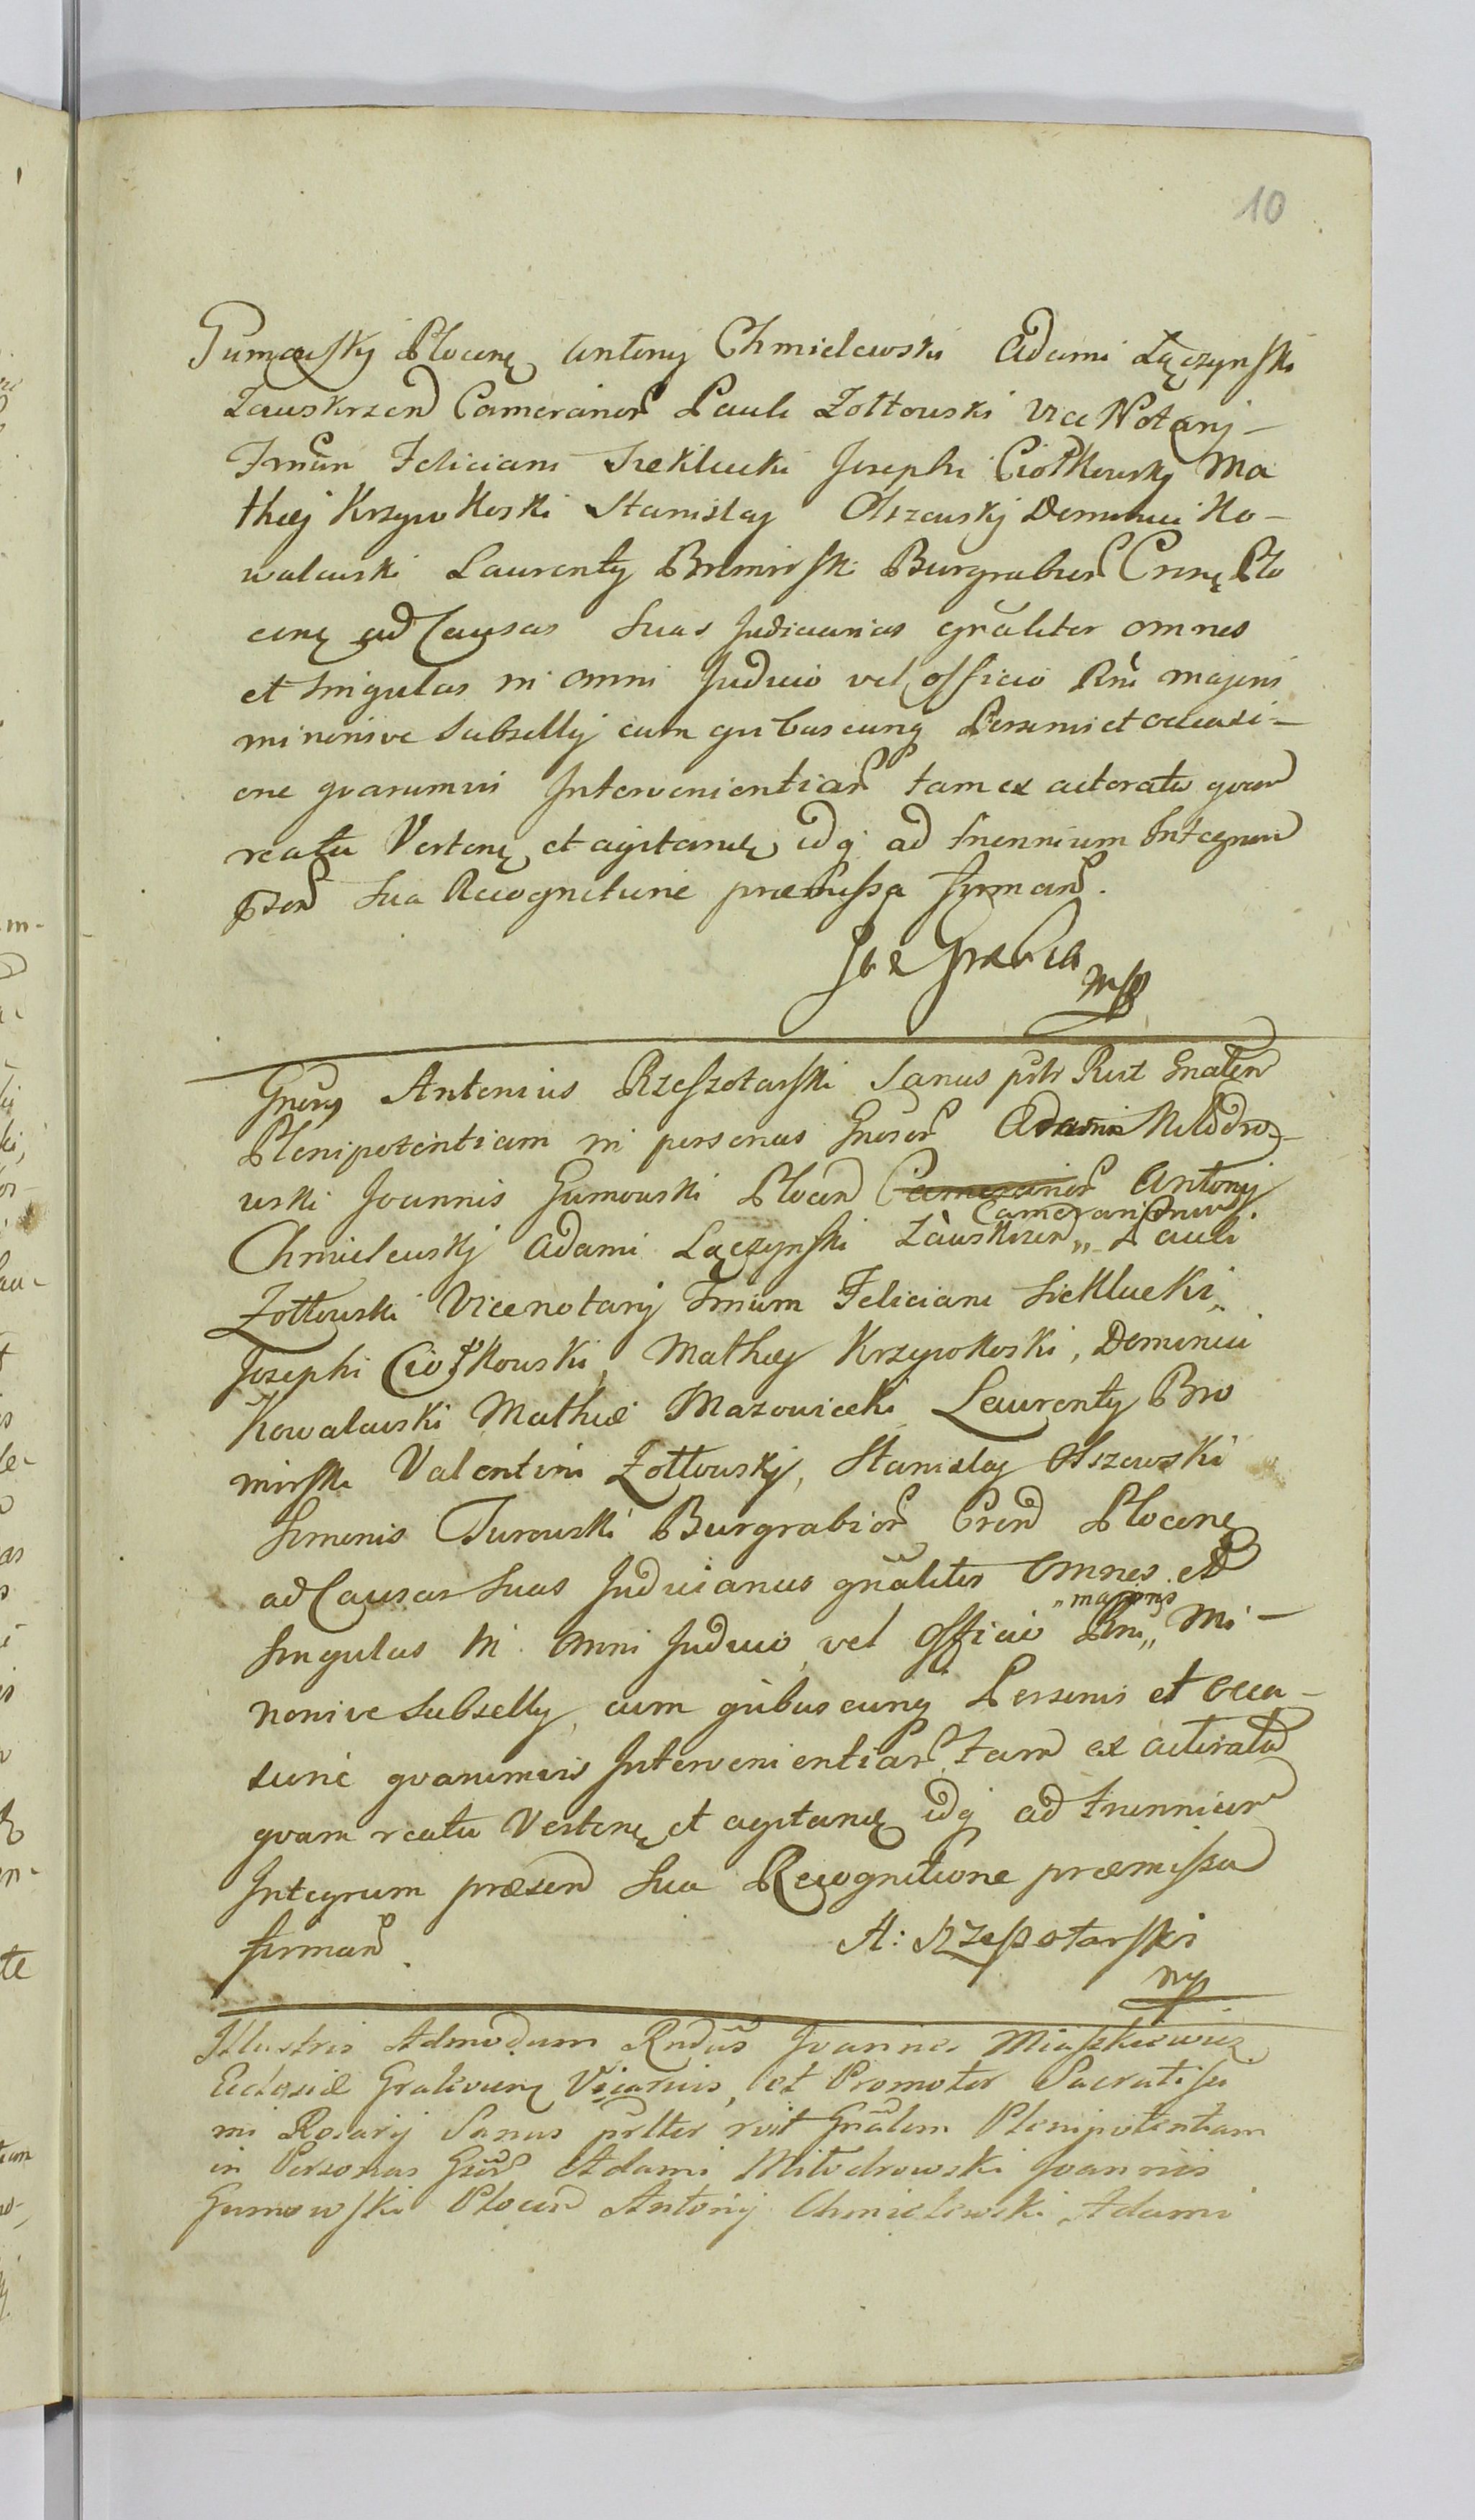 10
Gumowskij Plocen Antonij Chmielewski Adami Łączynski
Zawskrzen Cameranior Pauli Zołtowski ViceNotarij
Trmūn Feliciani Sieklucki Josephi Ciołkowskij Ma
thæj Krzywokoski Stanislaj Olszewskij Dominici Ko-
walewski Laurentij Bromirski Burgrabior Crenę Plo
cenę ad Causas suas Judiciarias gñaliter omnes
et singulas in omni Judicio vel officio Rni majoris
minorisve Subsellij cum quibuscunq Personis et occasi-
one quarumvis Intervenientiar tam ex actoratu quam
reatu Vertenę et agitandę idq ad triennium Integrum
pzen sua Recognitione præmissa firman.
Joe Grabia
mp
Gnosus Antonius Rzeszotarski Sanus prtr Rcit Gnalem
Plenipotentiam in personas Gnosor Adami Miłodro-
wski Joannis Gumowski Plocen Cameranior Antonij
Cameraniorum
Chmielewskj Adami Łączynski Zawskrzen „ Pauli
Zołtowski Vicenotarij Trmium Feliciani Sieklucki,
Josephi Ciołkowski, Mathej Krzywokoski, Dominici
Kowalewski Mathiæ Mazowiecki Laurentij Bro
mirski Valentini Zołtowskij, Stanislaj Olszewski
Simonis Turowski Burgrabior Cren Plocenę
ad Causas suas Judiciarias gñaliter omnes et
„majoris
singulas in omni Judicio vel officio Rni „ Mi-
norisve Subsellij, cum quibuscunq Personis et occa-
sione quarumvis Intervenientiar tam ex actoratu
quam reatu Vertenę et agitandę idq ad triennium
Integrum præsen sua Recognitione præmissa
firman.
A: Rzeszotarski
mp
Illustris Admodum Rndūs Joannes Miaszkiewicz
Ecclesiæ Gralevienę Vicarius, et Promotor Sacratissi
mi Rosarij Sanus prtter rcit Gnālem Plenipotentiam
in Personas Gsor Adami Miłodrowski Joannis
Gumowski Plocen Antonij Chmielewski, Adami